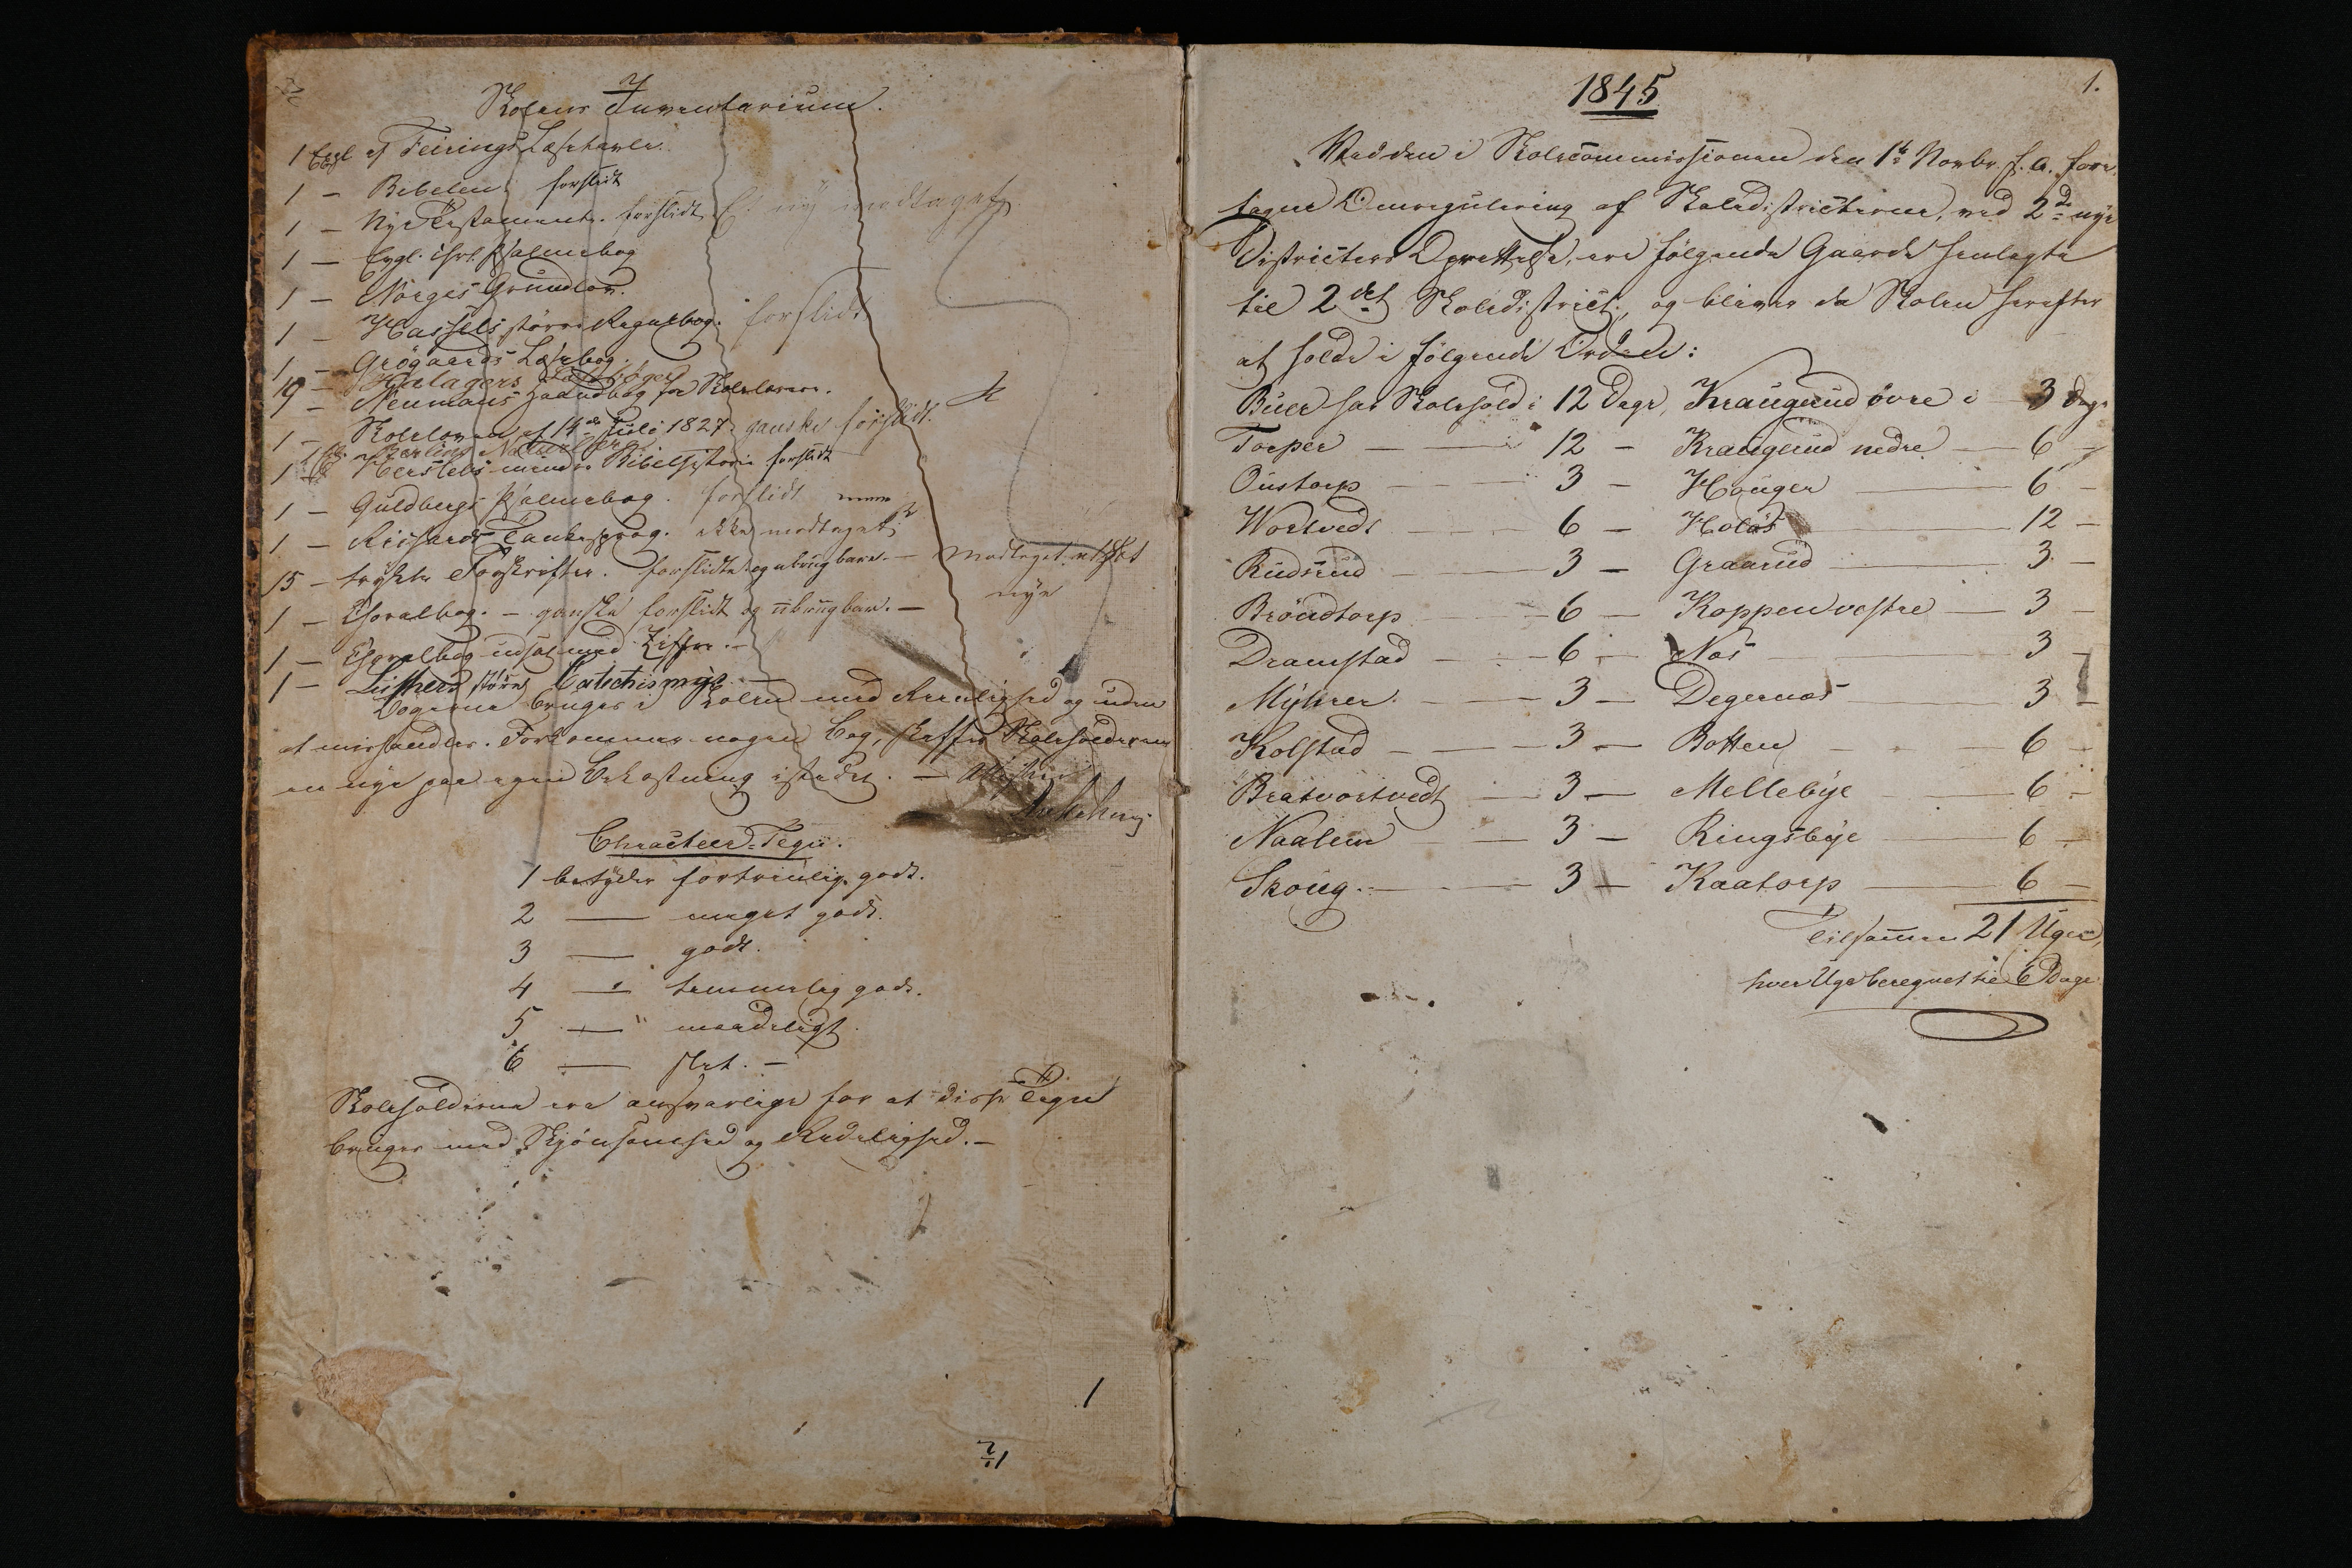 Skolens Inventarium.
1 Expl. af Feirings Læsetavler.
1 — Bibelen forslidt
1 — Nye Testament. forslidt Et ny modtaget
1 — Evgl. chr. Psalmebog
1 — Norges Grundlov.
1 — Hassels større Regnebog. forslidt
1 — Grögaards Læsebog.
19 — Hallagers
— Neumans Haandbog for Skolelærere.
1 — Skoleloven af 14de Juli 1827. ganske forslidt.
1 — Herslebs mindre Bibelhistorie forslidt
1 — Guldbergs Psalmebog. forslidt
1 — Richards Tankesprog. ikke modtaget
15 — trykte Forskrifter. forslidte og ubrugbare. — Modtaget et Sæt
nye
1 — Choralbog. — ganske forslidt og ubrugbar. —
1 — Choralbog udsat med Ziffre. —
1 — Luthers större Catechismus —
Bøgerne bruges i Skolen med Reenlighed og uden
at mishandles. Forkommer nogen Bog, skaffer Skoleholderen
en nye paa egen Bekostning istedet. —
Characteer-Tegn.
1 betyder fortrinlig godt.
2 — meget godt.
3 — godt.
4 — temmelig godt.
5 — maadeligt.
6 — slet. —
Skoleholderne ere ansvarlige for at disse Tegn
bruges med Skjönsomhed og Redelighed. —
1
1845
1.
Ved den i Skolecommissionen den 1te Novbr. f. A. fore-
tagne Omregulering af Skoledistricterne, ved 2de nye
Districters Oprettelse, ere følgende Gaarde henlagte
til 2det Skoledistrict, og bliver da Skolen herefter
at holde i følgende Orden:
Buer har Skolehold i 12 Dage, Kraugerud övre i 3 Dage
Torper — 12 — Kraugerud nedre — 6 —
Oustorp — 3 — Houger — 6 —
Wortvedt — 6 — Holös — 12 —
Rudsrud — 3 — Graarud — 3 —
Bröndtorp — 6 — Koppen vestre — 3 —
Dramstad — 6 — Nos — 3 —
Myhrer — 3 — Degernæs — 3 —
Kolstad — 3 — Botten — 6 —
Bratvortvedt — 3 — Mellebye — 6 —
Naalum — 3 — Ringsbye — 6 —
Skoug — 3 — Kaatorp — 6 —
Tilsammen 21 Uger,
hver Uge beregnet til 6 Dage